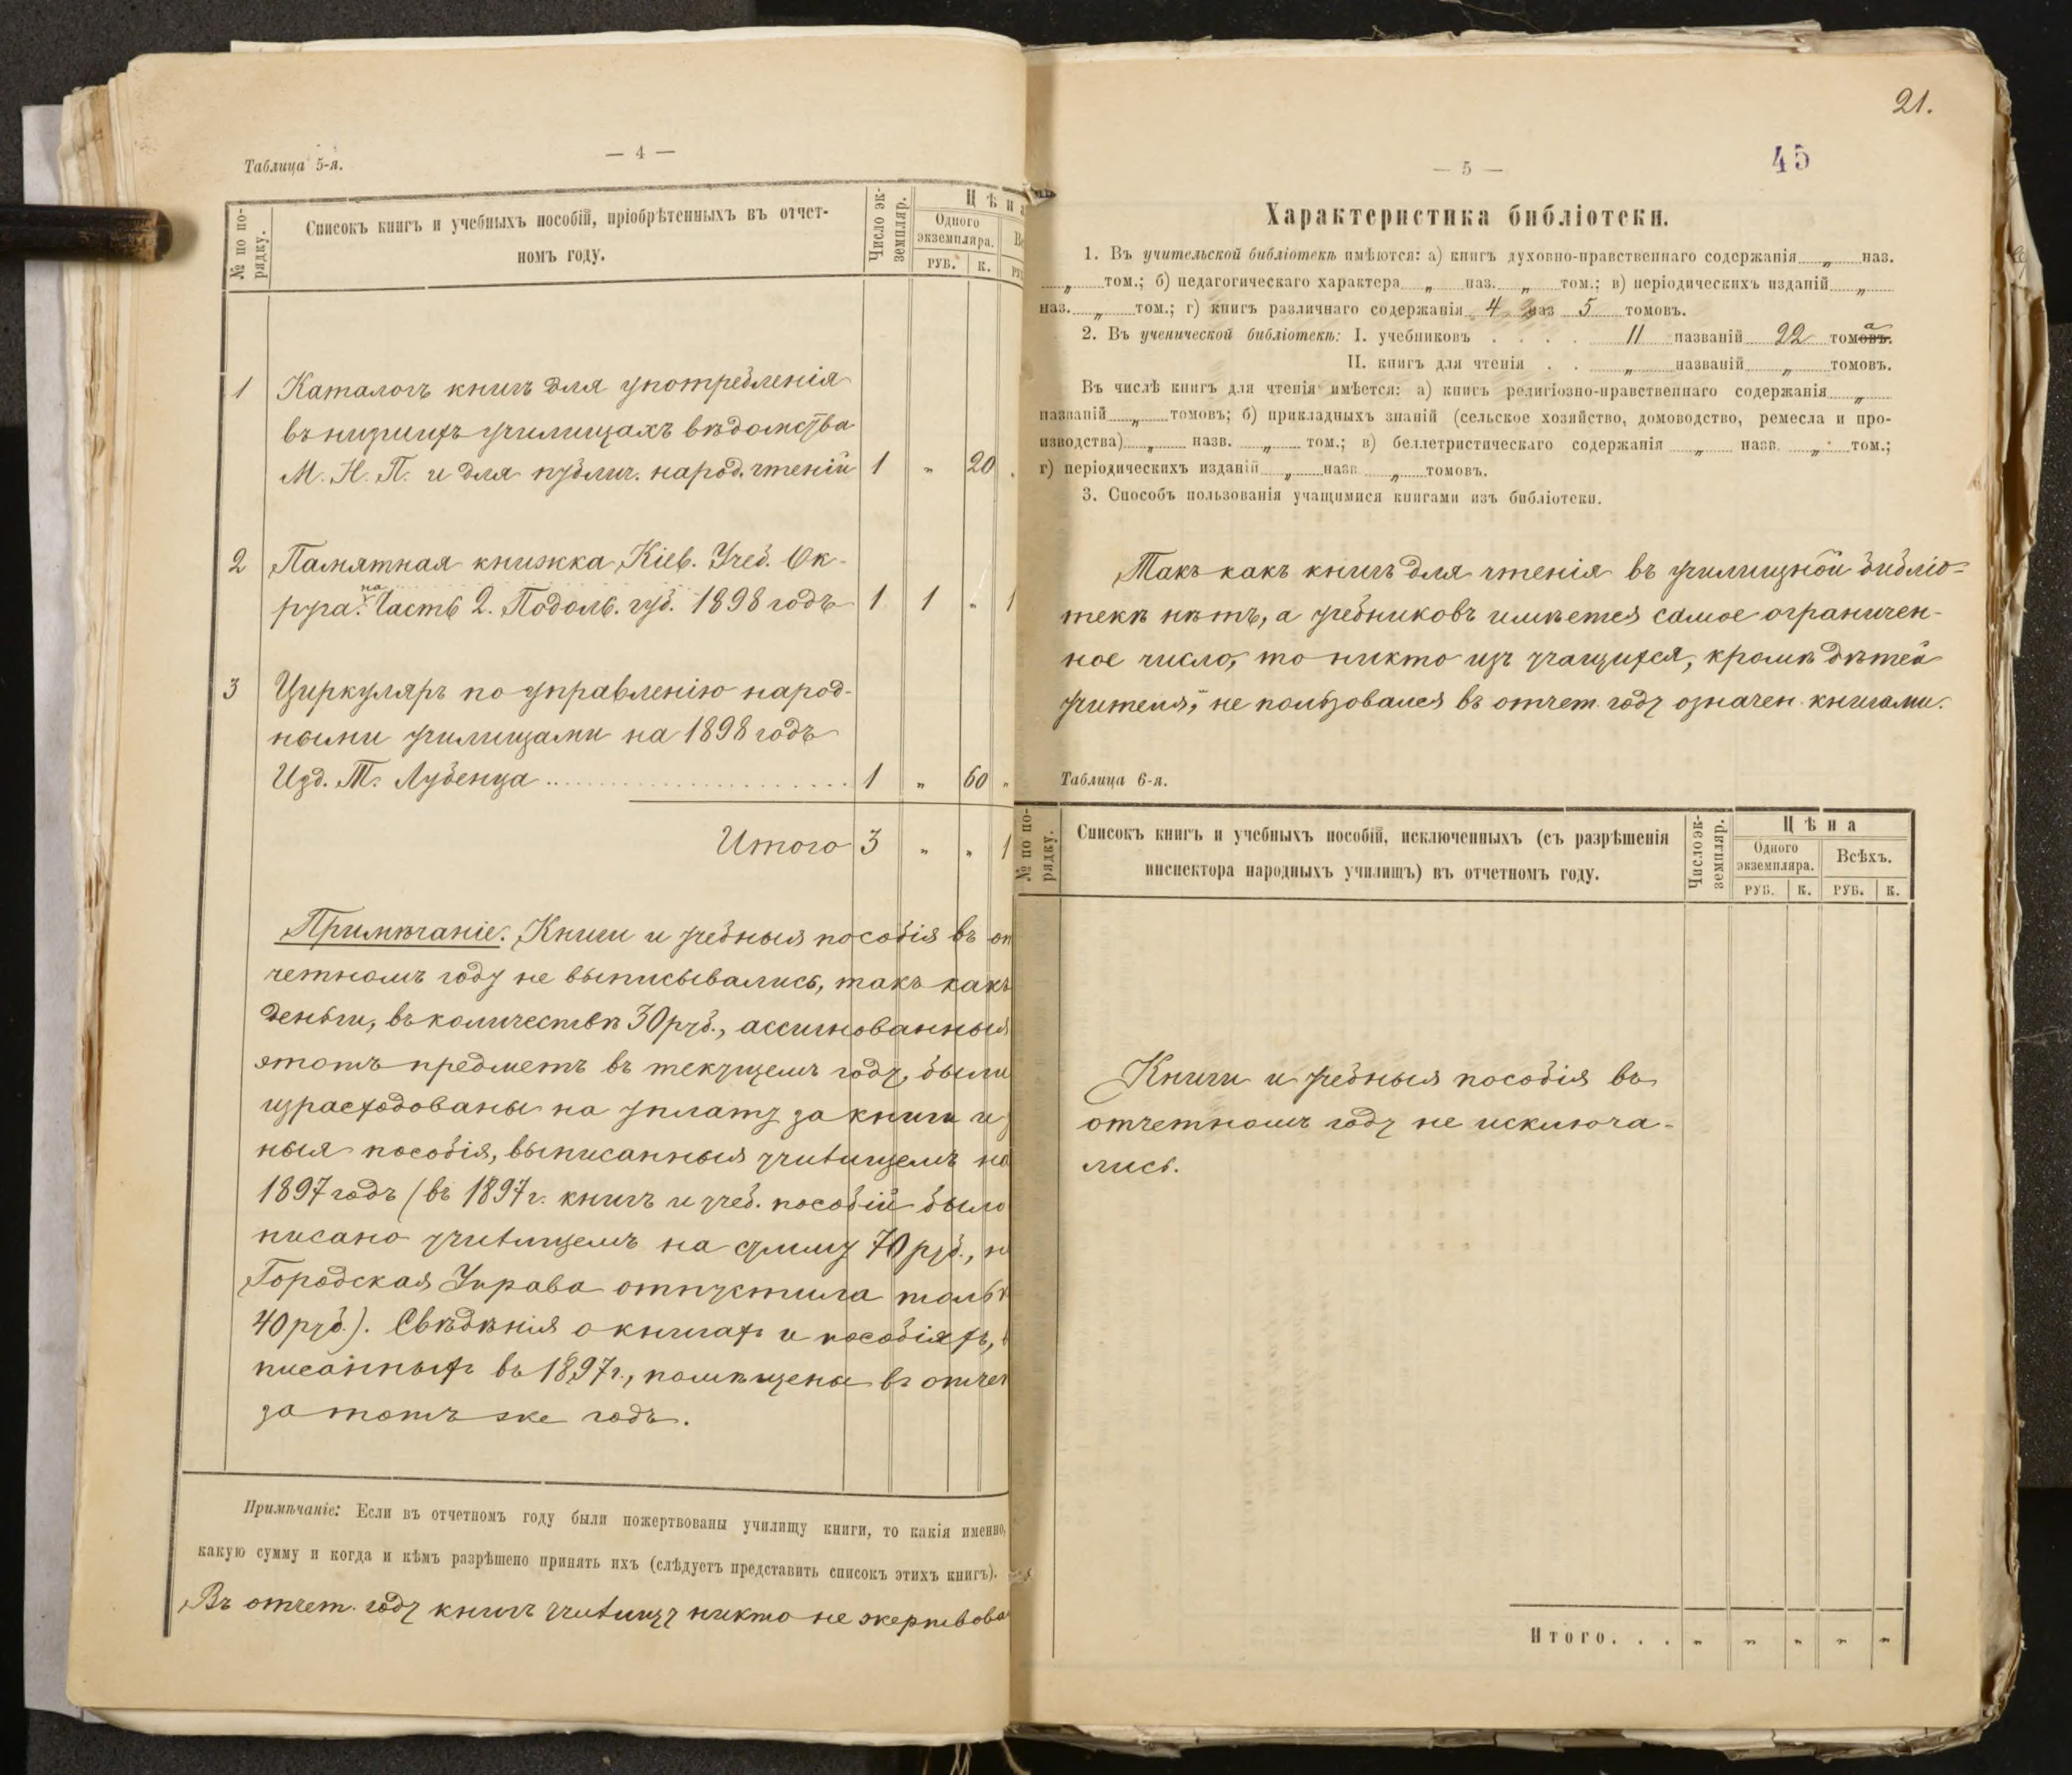 Таблица 5-я.
— 4 —
№ по по-
рядку.
Списокъ книгъ и учебныхъ пособій, пріобрѣтенныхъ въ отчет-
номъ году.
Число эк-
земпляр.
Цѣна
Одного
экземпляра.
РУБ.
К.
1 Каталогъ книгъ для употребленія
въ низшихъ училищахъ вѣдомства
М. Н. П. и для публич. народ. чтеній 1 " 20
2 Памятная книжка Кіев. Учеб. Ок-
руга. на Часть 2. Подольс. губ. 1898 годъ 1 1 " 1
3 Циркуляръ по управленію народ-
ными училищами на 1898 годъ
Изд. Т. Лубенца 1 " 60 "
Итого 3 " " 1
Примѣчаніе. Книги и учебныя пособія въ от
четномъ году не выписывались, такъ какъ
деньги, въ количествѣ 30 руб., ассигнованныя
этотъ предметъ въ текущемъ году, были
израсходованы на уплату за книги и у
ныя пособія, выписанныя училищемъ на
1897 годъ (въ 1897 г. книгъ и учеб. пособій было
писано училищемъ на сумму 70 руб., н
Городская Управа отпустила тольк
40 руб.). Свѣдѣнія о книгахъ и пособіяхъ, в
писанныхъ въ 1897 г., помѣщены въ отчет
за тотъ же годъ.
Примѣчаніе: Если въ отчетномъ году были пожертвованы училищу книги, то какія именно,
какую сумму и когда и кѣмъ разрѣшено принять ихъ (слѣдуетъ представить списокъ этихъ книгъ).
Въ отчет. году книгъ училищу никто не жертвова
21.
45
— 5 —
Характеристика библіотеки.
1. Въ учительской библіотекѣ имѣются: а) книгъ духовно-нравственнаго содержанія " наз.
" том.; б) педагогическаго характера " наз. " том.; в) періодическихъ изданій "
наз. " том.; г) книгъ различнаго содержанія 4 наз 5 томовъ.
2. Въ ученической библіотекѣ: I. учебниковъ . . . . 11 названій 22 томовъ. а
II. книгъ для чтенія . . " названій " томовъ.
Въ числѣ книгъ для чтенія имѣется: а) книгъ религіозно-нравственнаго содержанія "
названій " томовъ; б) прикладныхъ знаній (сельское хозяйство, домоводство, ремесла и про-
изводства) " назв. " том.; в) беллетристическаго содержанія " назв. " том.;
г) періодическихъ изданій " назв " томовъ.
3. Способъ пользованія учащимися книгами изъ библіотеки.
Такъ какъ книгъ для чтенія въ училищной библіо-
текѣ нѣтъ, а учебниковъ имѣется самое ограничен-
ное число, то никто изъ учащихся, кромѣ дѣтей
учителя, не пользовался въ отчет. году означен. книгами.
Таблица 6-я.
№ по по-
рядку.
Списокъ книгъ и учебныхъ пособій, исключенныхъ (съ разрѣшенія
инспектора народныхъ училищъ) въ отчетномъ году.
Число эк-
земпляр.
Цѣна
Одного
экземпляра.
Всѣхъ.
РУБ. К. РУБ. К.
Книги и учебныя пособія въ
отчетномъ году не исключа-
лись.
Итого. . . " " " " "